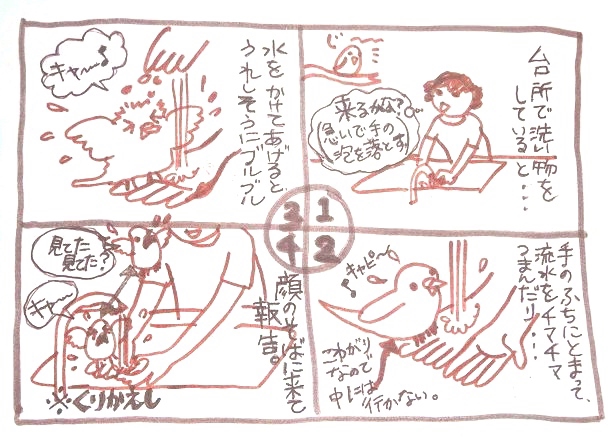 台所で洗い物を
していると・・・
じーっ
来るかな？
急いで手の
泡を落とす
1
2
3
4
手のふちにとまって、
流水をチマチマ
つまんだり・・・
キャピ〜♪
こわがり
なので
中には
行かない。
水をかけてあげると、
うれしそうにブルブル
キャ〜〜♪
顔のそばに来て
報告。
見てた
見てた？
キャ〜
※くりかえし